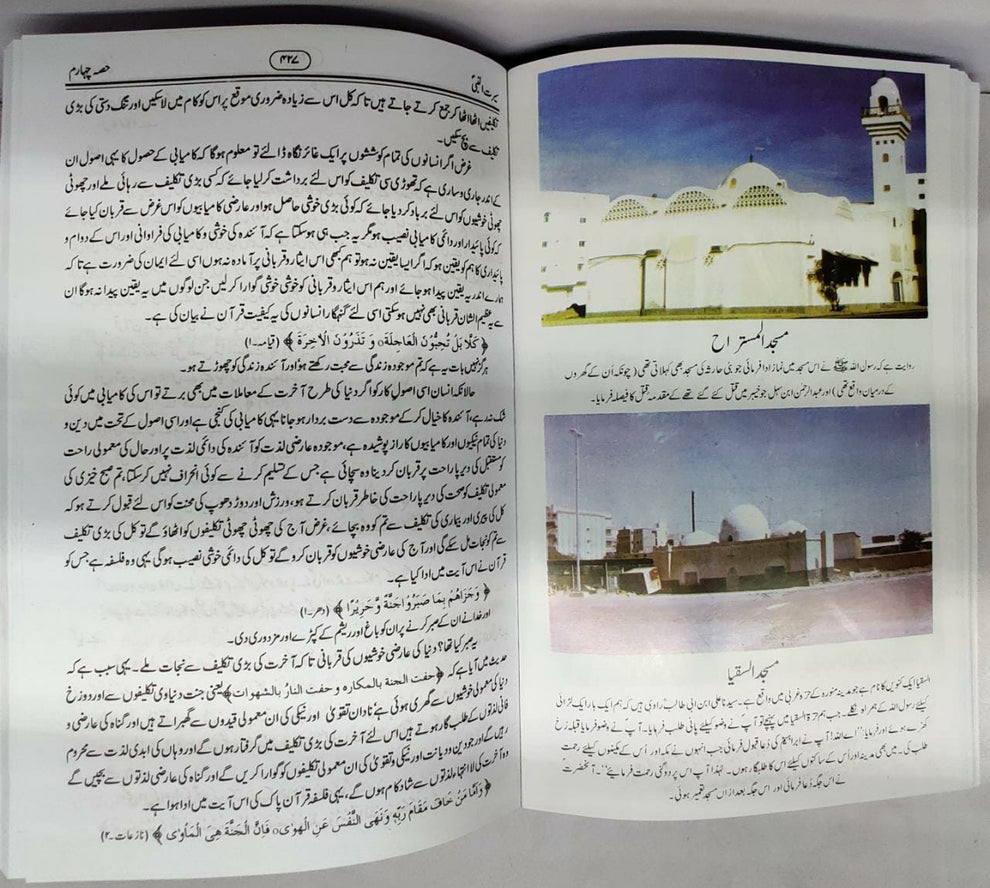 سیرت النبیؐ
۴۲۷
حصہ چہارم
تکلیفیں اٹھا اٹھا کر جمع کرتے جاتے ہیں تاکہ کل اس سے زیادہ ضروری موقع پر اس کو کام میں لاسکیں اور تنگ دستی کی بڑی
تکلیف سے بچ سکیں۔
غرض اگر انسانوں کی تمام کوششوں پر ایک غائر نگاہ ڈالئے تو معلوم ہوگا کہ کامیابی کے حصول کا یہی اصول ان
کے اندر جاری و ساری ہے کہ تھوڑی سی تکلیف کو اس لئے برداشت کرلیا جائے کہ کسی بڑی تکلیف سے رہائی ملے اور چھوٹی
چھوٹی خوشیوں کو اس لئے برباد کردیا جائے کہ کوئی بڑی خوشی حاصل ہو اور عارضی کامیابیوں کو اس غرض سے قربان کیا جائے
کہ کوئی پائیدار اور دائمی کامیابی نصیب ہو مگر یہ جب ہی ہوسکتا ہے کہ آئندہ کی خوشی و کامیابی کی فراوانی اور اس کے دوام و
پائیداری کا ہم کو یقین ہو کہ اگر ایسا یقین نہ ہو تو ہم کبھی اس ایثار و قربانی پر آمادہ نہ ہوں اسی لئے ایمان کی ضرورت ہے تاکہ
ہمارے اندر یہ یقین پیدا ہوجائے اور ہم اس ایثار و قربانی کو خوشی خوشی گوارا کرلیں جن لوگوں میں یہ یقین پیدا نہ ہوگا ان
سے یہ عظیم الشان قربانی بھی نہیں ہوسکتی اسی لئے گنہگار انسانوں کی یہ کیفیت قرآن نے بیان کی ہے۔
﴿ كَلَّا بَلْ تُحِبُّوْنَ الْعَاجِلَةَ o وَ تَذَرُوْنَ الْاٰخِرَةَ ﴾ (قیامہ۔۱)
ہرگز نہیں بات یہ ہے کہ تم موجودہ زندگی سے محبت رکھتے ہو اور آئندہ زندگی کو چھوڑتے ہو۔
حالانکہ انسان اسی اصول کار کو اگر دنیا کی طرح آخرت کے معاملات میں بھی برتے تو اس کی کامیابی میں کوئی
شک نہ رہے، آئندہ کا خیال کرکے موجودہ سے دست بردار ہوجانا یہی کامیابی کی کنجی ہے اور اسی اصول کے تحت میں دین و
دنیا کی تمام نیکیوں اور کامیابیوں کا راز پوشیدہ ہے، موجودہ عارضی لذت کو آئندہ کی دائمی لذت پر اور حال کی معمولی راحت
کو مستقبل کی دیرپا راحت پر قربان کردینا وہ سچائی ہے جس کے تسلیم کرنے سے کوئی انحراف نہیں کرسکتا، تم صبح خیزی کی
معمولی تکلیف کو صحت کی دیرپا راحت کی خاطر قربان کرتے ہو، ورزش اور دوڑ دھوپ کی محنت کو اس لئے قبول کرتے ہو کہ
کل کی پیری اور بیماری کی تکلیف سے تم کو وہ بچائے، غرض آج کی چھوٹی چھوٹی تکلیفوں کو اٹھاؤ گے تو کل کی بڑی تکلیف
سے تم کو نجات مل سکے گی اور آج کی عارضی خوشیوں کو قربان کردو گے تو کل کی دائمی خوشی نصیب ہوگی یہی وہ فلسفہ ہے جس کو
قرآن نے اس آیت میں ادا کیا ہے۔
﴿ وَجَزَاهُمْ بِمَا صَبَرُوْا جَنَّةً وَّ حَرِيْرًا ﴾ (دھر۔۱)
اور خدا نے ان کے صبر کرنے پر ان کو باغ اور ریشم کے کپڑے اور مزدوری دی۔
یہ صبر کیا تھا؟ دنیا کی عارضی خوشیوں کی قربانی تاکہ آخرت کی بڑی تکلیف سے نجات ملے۔ یہی سبب ہے کہ
حدیث میں آیا ہے کہ ﴿حفت الجنة بالمكاره و حفت النارُ بالشهوات﴾ یعنی جنت دنیاوی تکلیفوں سے اور دوزخ
دنیا کی معمولی خوشیوں سے گھری ہوئی ہے نادان تقویٰ اور نیکی کی ان معمولی قیدوں سے گھبراتے ہیں اور گناہ کی عارضی و
فانی لذتوں کے طلب گار ہوتے ہیں اس لئے آخرت کی بڑی تکلیف میں گرفتار ہوں گے اور وہاں کی ابدی لذت سے محروم
رہیں گے اور جو دین و دیانت اور نیکی و تقویٰ کی ان معمولی تکلیفوں کو گوارا کریں گے اور گناہ کی عارضی لذتوں سے بچیں گے
وہ آخرت کی لا انتہا لذتوں سے شاد کام ہوں گے، یہی فلسفہ قرآن پاک کی اس آیت میں ادا ہوا ہے۔
﴿ وَاَمَّا مَنْ خَافَ مَقَامَ رَبِّهٖ وَ نَهَى النَّفْسَ عَنِ الْهَوٰى o فَاِنَّ الْجَنَّةَ هِىَ الْمَاْوٰى ﴾ (نازعات۔۲)
مسجد المستراح
روایت ہے کہ رسول اللہ ﷺ نے اس مسجد میں نماز ادا فرمائی جو بنی حارثہ کی مسجد بھی کہلاتی تھی (چونکہ اُن کے گھروں
کے درمیان واقع تھی) اور عبدالرحمٰن ابن سہل جو خیبر میں قتل کئے گئے تھے کے مقدمہ قتل کا فیصلہ فرمایا۔
مسجد السقیا
السقیا ایک کنویں کا نام ہے جو مدینہ منورہ کے حرّہ غربی میں واقع ہے۔ سیدنا علی ابن ابی طالبؓ راوی ہیں کہ ہم ایک بار ایک لڑائی
کیلئے رسول اللہ کے ہمراہ نکلے۔ جب ہم حرّۃ السقیا میں پہنچے تو آپؐ نے وضو کیلئے پانی طلب فرمایا۔ آپؐ نے وضو فرمایا قبلہ رُخ
کھڑے ہوئے اور فرمایا ”اے اللہ! آپ نے ابراہیمؑ کی دُعا قبول فرمائی جب انہوں نے مکہ اور اُس کے مکینوں کیلئے رحمت
طلب کی۔ میں بھی مدینہ اور اُس کے ساکنوں کیلئے اس کا طلبگار ہوں۔ لہٰذا آپ اس پر دوگنی رحمت فرمایئے“۔ آنحضرتؐ
نے اس جگہ دُعا فرمائی اور اس جگہ بعد ازاں مسجد تعمیر ہوئی۔